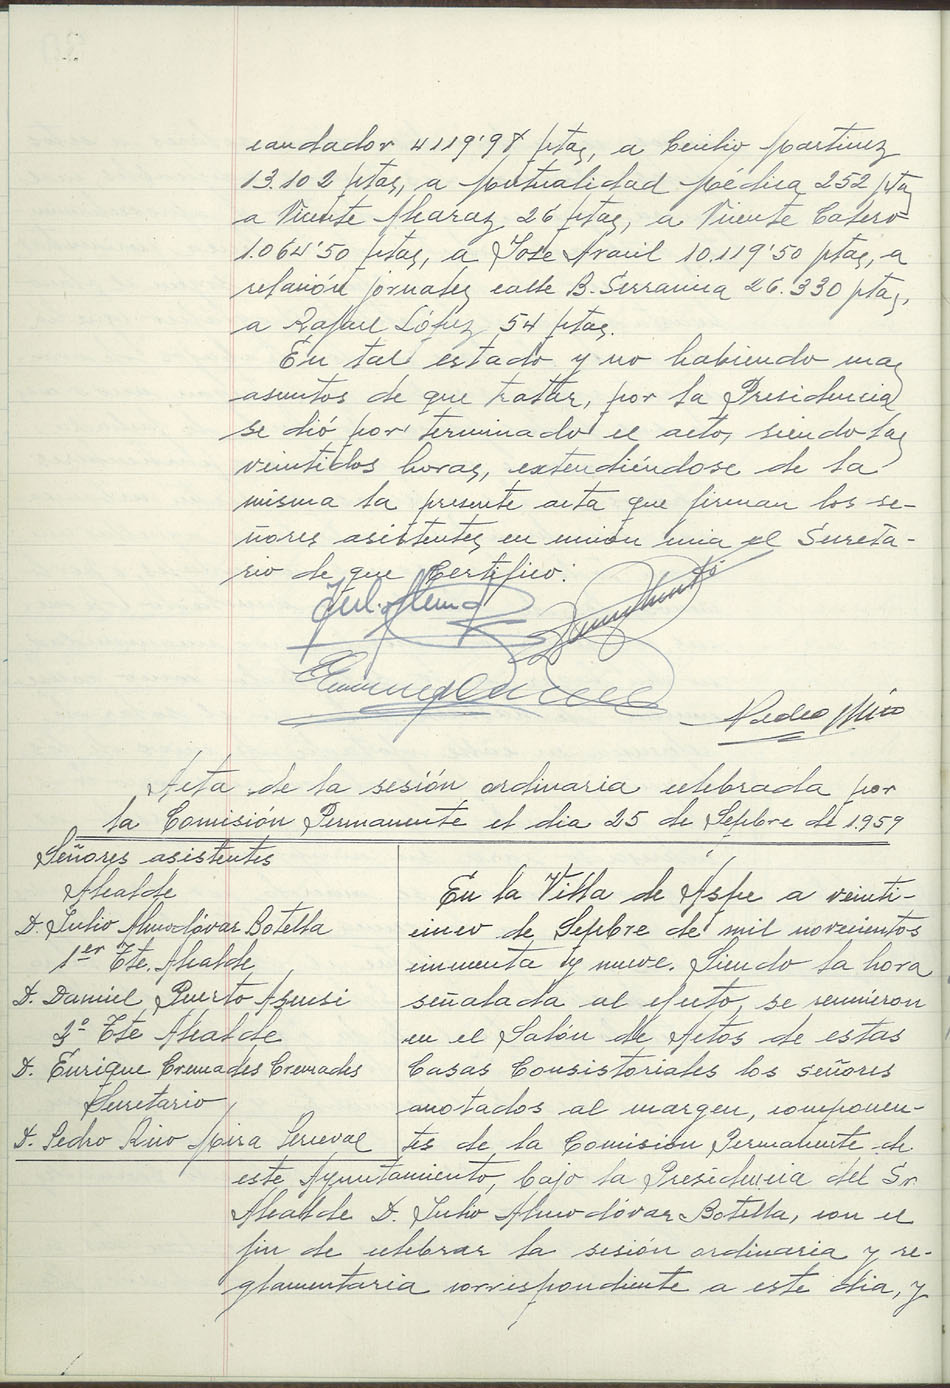 caudador 4119'98 ptas, a Cecilio Martinez
13.102 ptas, a Mutualidad Médica 252 ptas
a Vicente Alcaraz 26 ptas, a Vicente Calero
1.064'50 ptas, a José Aracil 10.119'50 ptas, a
relación jornales calle B. Serranica 26.330 ptas,
a Rafael López 54 ptas.
En tal estado y no habiendo mas
asuntos de que tratar, por la Presidencia
se dió por terminado el acto, siendo las
veintidos horas, extendiéndose de la
misma la presente acta que firman los se-
ñores asistentes en unión mia el Secreta-
rio de que Certifico:
Pedro Miró
Acta de la sesión ordinaria celebrada por
la Comisión Permanente el dia 25 de Sepbre de 1.959
Señores asistentes
Alcalde
D. Julio Almodóvar Botella
1er Tte. Alcalde
D. Daniel Puerto Asensi
3º Tte Alcalde
D. Enrique Cremades Cremades
Secretario
D. Pedro Mira
En la Villa de Aspe a veinti-
cinco de Sepbre de mil novecientos
cincuenta y nueve. Siendo la hora
señalada al efecto, se reunieron
en el Salón de Actos de estas
Casas Consistoriales los señores
anotados al margen, componen-
tes de la Comisión Permanente de
este Ayuntamiento, bajo la Presidencia del Sr
Alcalde D. Julio Almodóvar Botella, con el
fin de celebrar la sesión ordinaria y re-
glamentaria correspondiente a este dia, y